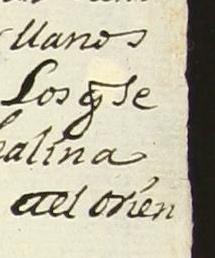 llanos
Los q̃ se
alina
del orien